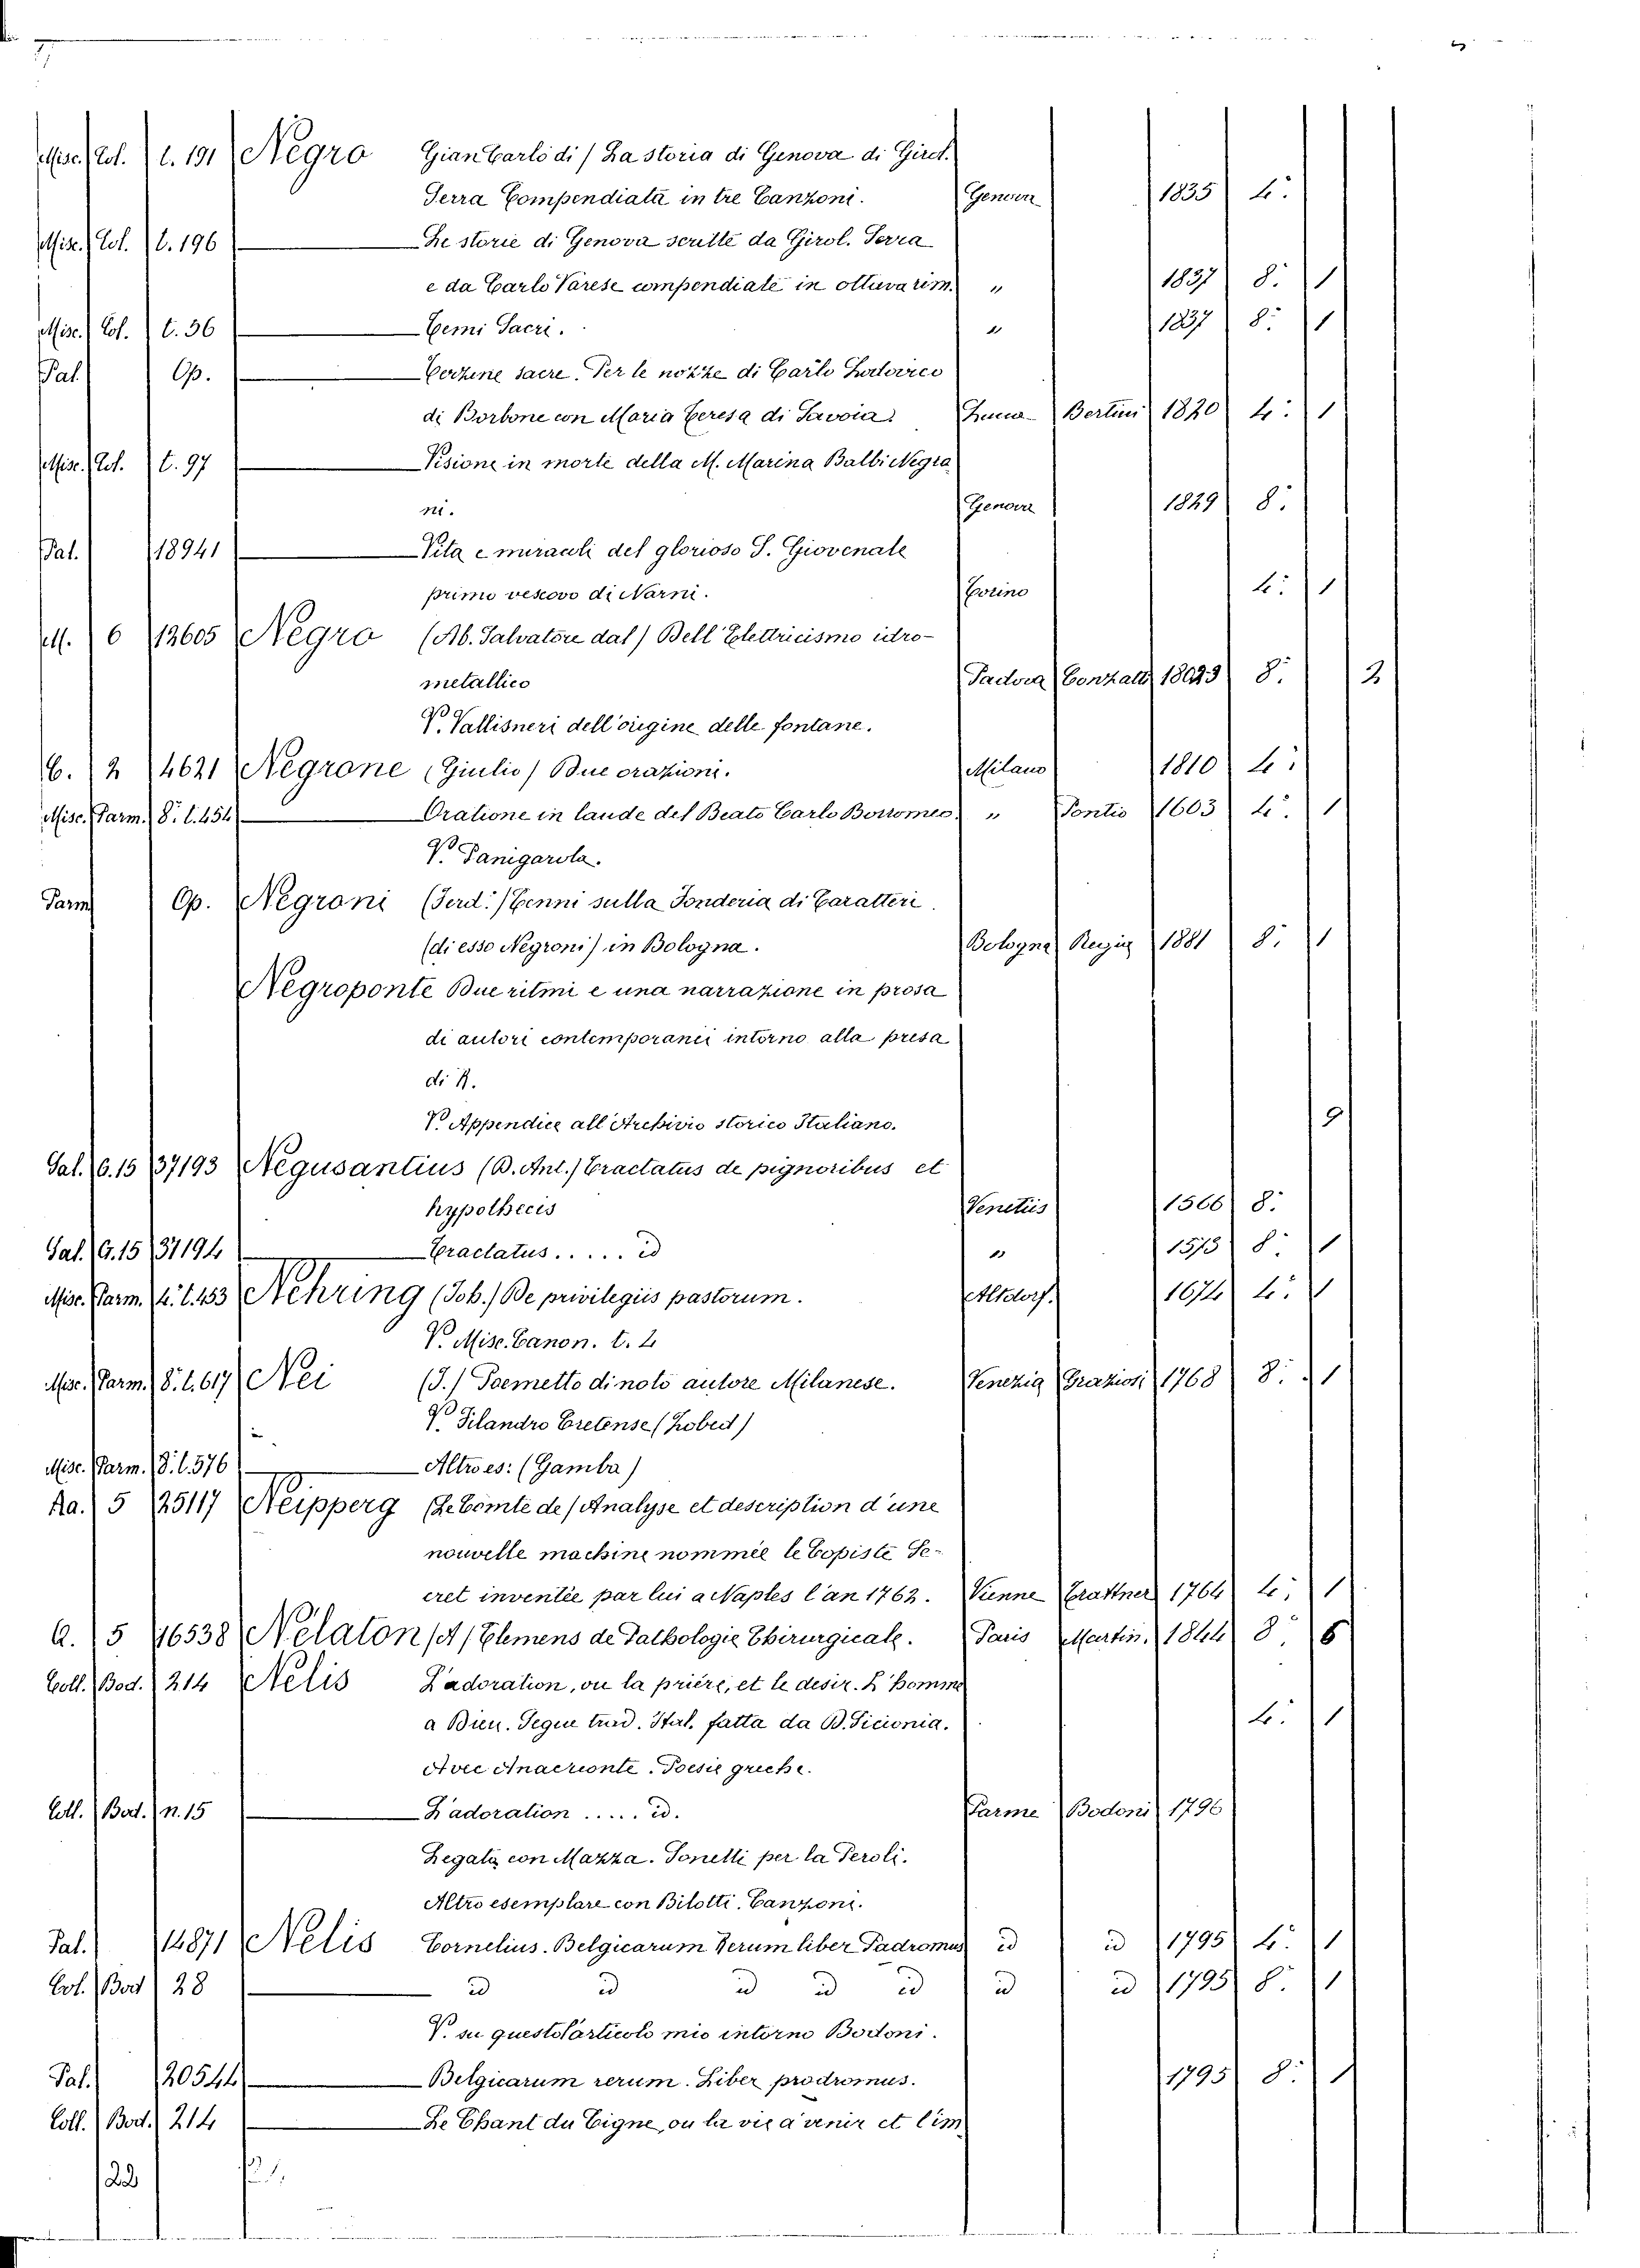 Misc. Col. t. 191 Negro Gian Carlo di / La storia di Genova di Girol.
Serra Compendiata in tre Canzoni. Genova 1835 4.°
Misc. Col. t. 196 Le storie di Genova scritte da Girol. Serra
e da Carlo Varese compendiate in ottava rim. " 1837 8.° 1
Misc. Col. t. 36 Cemi Sacri. " 1837 8.° 1
Pal. Op. Terzine sacre. Per le nozze di Carlo Lodovico
di Borbone con Maria Teresa di Savoia. Lucca Bertini 1820 4.° 1
Misc. Col. t. 97 Visione in morte della M. Marina Balbi Negro
ni. Genova 1829 8.°
Pal. 18941 Vita e miracoli del glorioso S. Giovenale
primo vescovo di Narni. Torino 4.° 1
M. 6 12605 Negro (Ab. Salvatore dal) Dell'Elettricismo idro-
metallico Padova 8.° 2
V. Vallisneri dell'origine delle fontane.
C. 2 4621 Negrone (Giulio) Due orazioni. Milano 1810 4.°
Misc. Parm. 8.° t. 454 Oratione in laude del Beato Carlo Borromeo. " Pontio 1603 4.° 1
V. Panigarola.
Parm Op. Negroni (Ferd.°) Cenni sulla Fonderia di Caratteri
(di esso Negroni) in Bologna. Bologna Regia 1881 8.° 1
Negroponte Due ritmi e una narrazione in prosa
di autori contemporanei intorno alla presa
di N.
V. Appendice all'Archivio storico Italiano. 9
Sal. G. 15 37193 Negusantius (B. Ant.) Tractatus de pignoribus et
hypothecis Venetiis 1566 8.°
Sal. G. 15 37194 Tractatus ..... id " 1573 8.° 1
Misc. Parm. 4.° t. 453 Nehring (Joh.) De privilegiis pastorum. Altdorf. 1674 4.° 1
V. Misc. Canon. t. 2
Misc. Parm. 8.° t. 617 Nei (J.) Poemetto di noto autore Milanese. Venezia Graziosi 1768 8.° 1
V. Filandro Cretense
Misc. Parm. 8.° t. 576 Altro es: (Gamba)
Aa. 5 25117 Neipperg (Le Comte de) Analyse et description d'une
nouvelle machine nommée le Copiste Se-
cret inventée par lui a Naples l'an 1762. Vienne Trattner 1764 4.° 1
Q. 5 16538 Nélaton (A) Elemens de Pathologie Chirurgicale. Paris Martin. 1844 8.° 6
Coll. Bod. 214 Nelis L'adoration, ou la prière, et le desir. L'homme
a Dieu. Segue trad. Ital. fatta da B. Sicionia. 4.° 1
Avec Anacreonte. Poesie greche.
Coll. Bod. n. 15 L'adoration ..... id. Parme Bodoni 1796
Legata con Mazza. Sonetti per la Peroli.
Altro esemplare con Bilotti. Canzoni.
Pal. 14871 Nelis Cornelius. Belgicarum Rerum liber Padromus id id 1795 4.° 1
Col. Bod 28 id id id id id id id 1795 8.° 1
V. su questo l'articolo mio intorno Bodoni.
Pal. 20544 Belgicarum rerum. Liber prodromus. 1795 8.° 1
Coll. Bod. 214 Le Chant du Cigne, ou la vie a venir et l'im
22